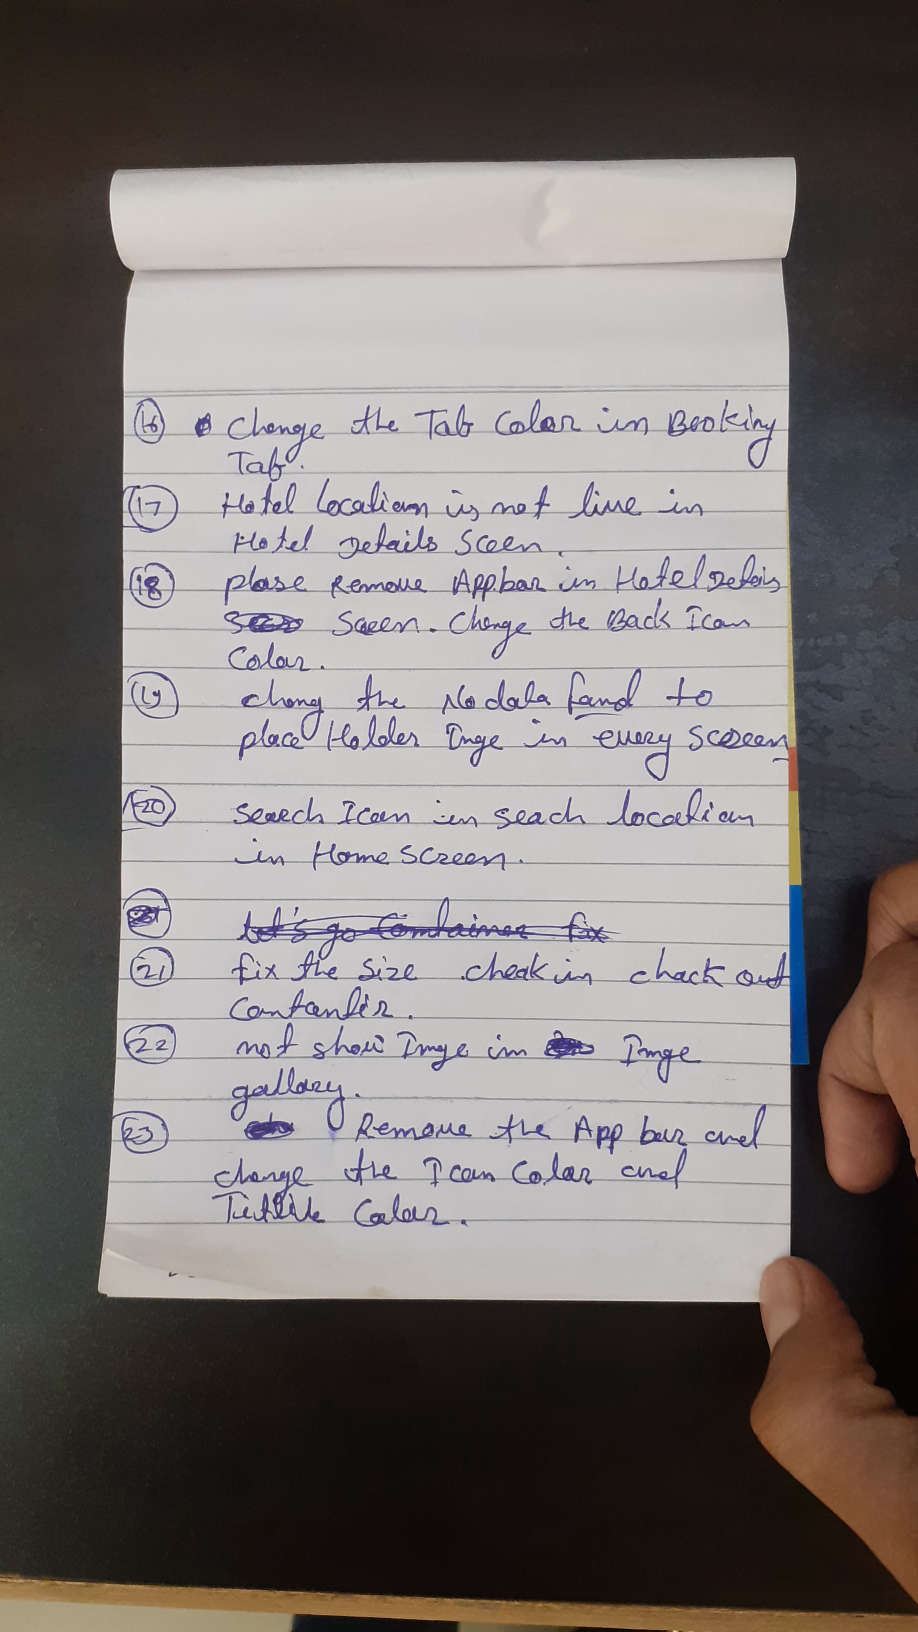 16 Change the Tab Color in Booking
Tab.
17 Hotel location is not live in
Hotel Details Sceen.
18 plase Remove Appbar in Hotel Detais
Sceen. Change the Back Icon
Color.
19 chang the No data fand to
place Holder Imge in every screen
20 search Icon in seach location
in Home Screen.
let's go Container fix
21 fix the Size cheak in chack out
Contanir.
22 not show Imge in Imge
gallary.
23 Remove the App bar and
change the Icon Color and
Tittle Color.